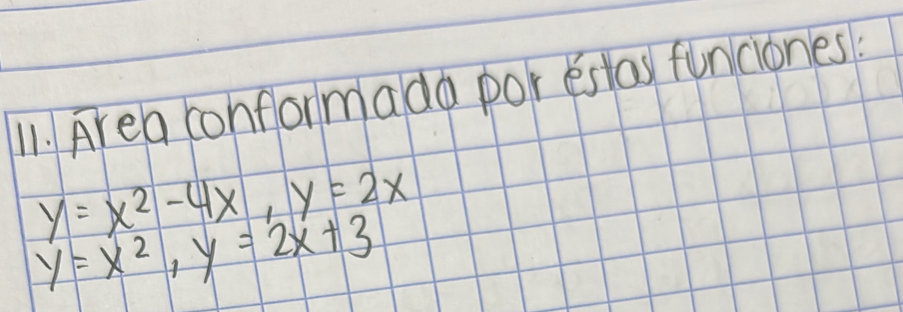 11. Área conformada por éstas funciones:
y = x² - 4x, y = 2x
y = x², y = 2x + 3